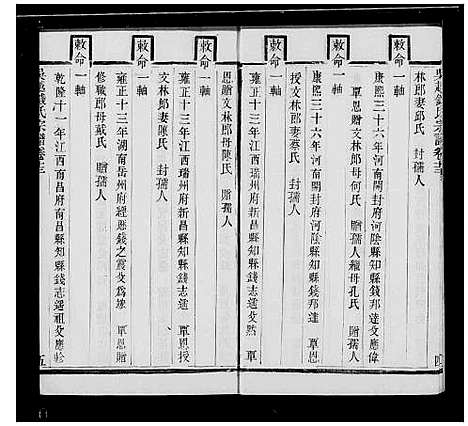 吳越錢氏宗譜卷十三
林郎妻邱氏 封孺人
敕命一軸
康熙三十六年河南開封府河陰縣知縣錢邦達父應偉
覃恩贈文林郎母何氏 贈孺人繼母孔氏
敕命一軸
康熙三十六年河南開封府河陰縣知縣錢邦達 覃恩
授文林郎妻蔡氏 封孺人
敕命一軸
雍正十三年江西瑞州府新昌縣知縣錢志遙父然 覃
四
恩贈文林郎母陳氏 贈孺人
敕命一軸
雍正十三年江西瑞州府新昌縣知縣錢志遙 覃恩授
文林郎妻陳氏 封孺人
敕命一軸
雍正十三年湖南岳州府經歷錢之震父為 覃恩贈
修職郎母戴氏 贈孺人
敕命一軸
乾隆十一年江西南昌府南昌縣知縣錢志遙祖父應
吳越錢氏宗譜卷十三
五